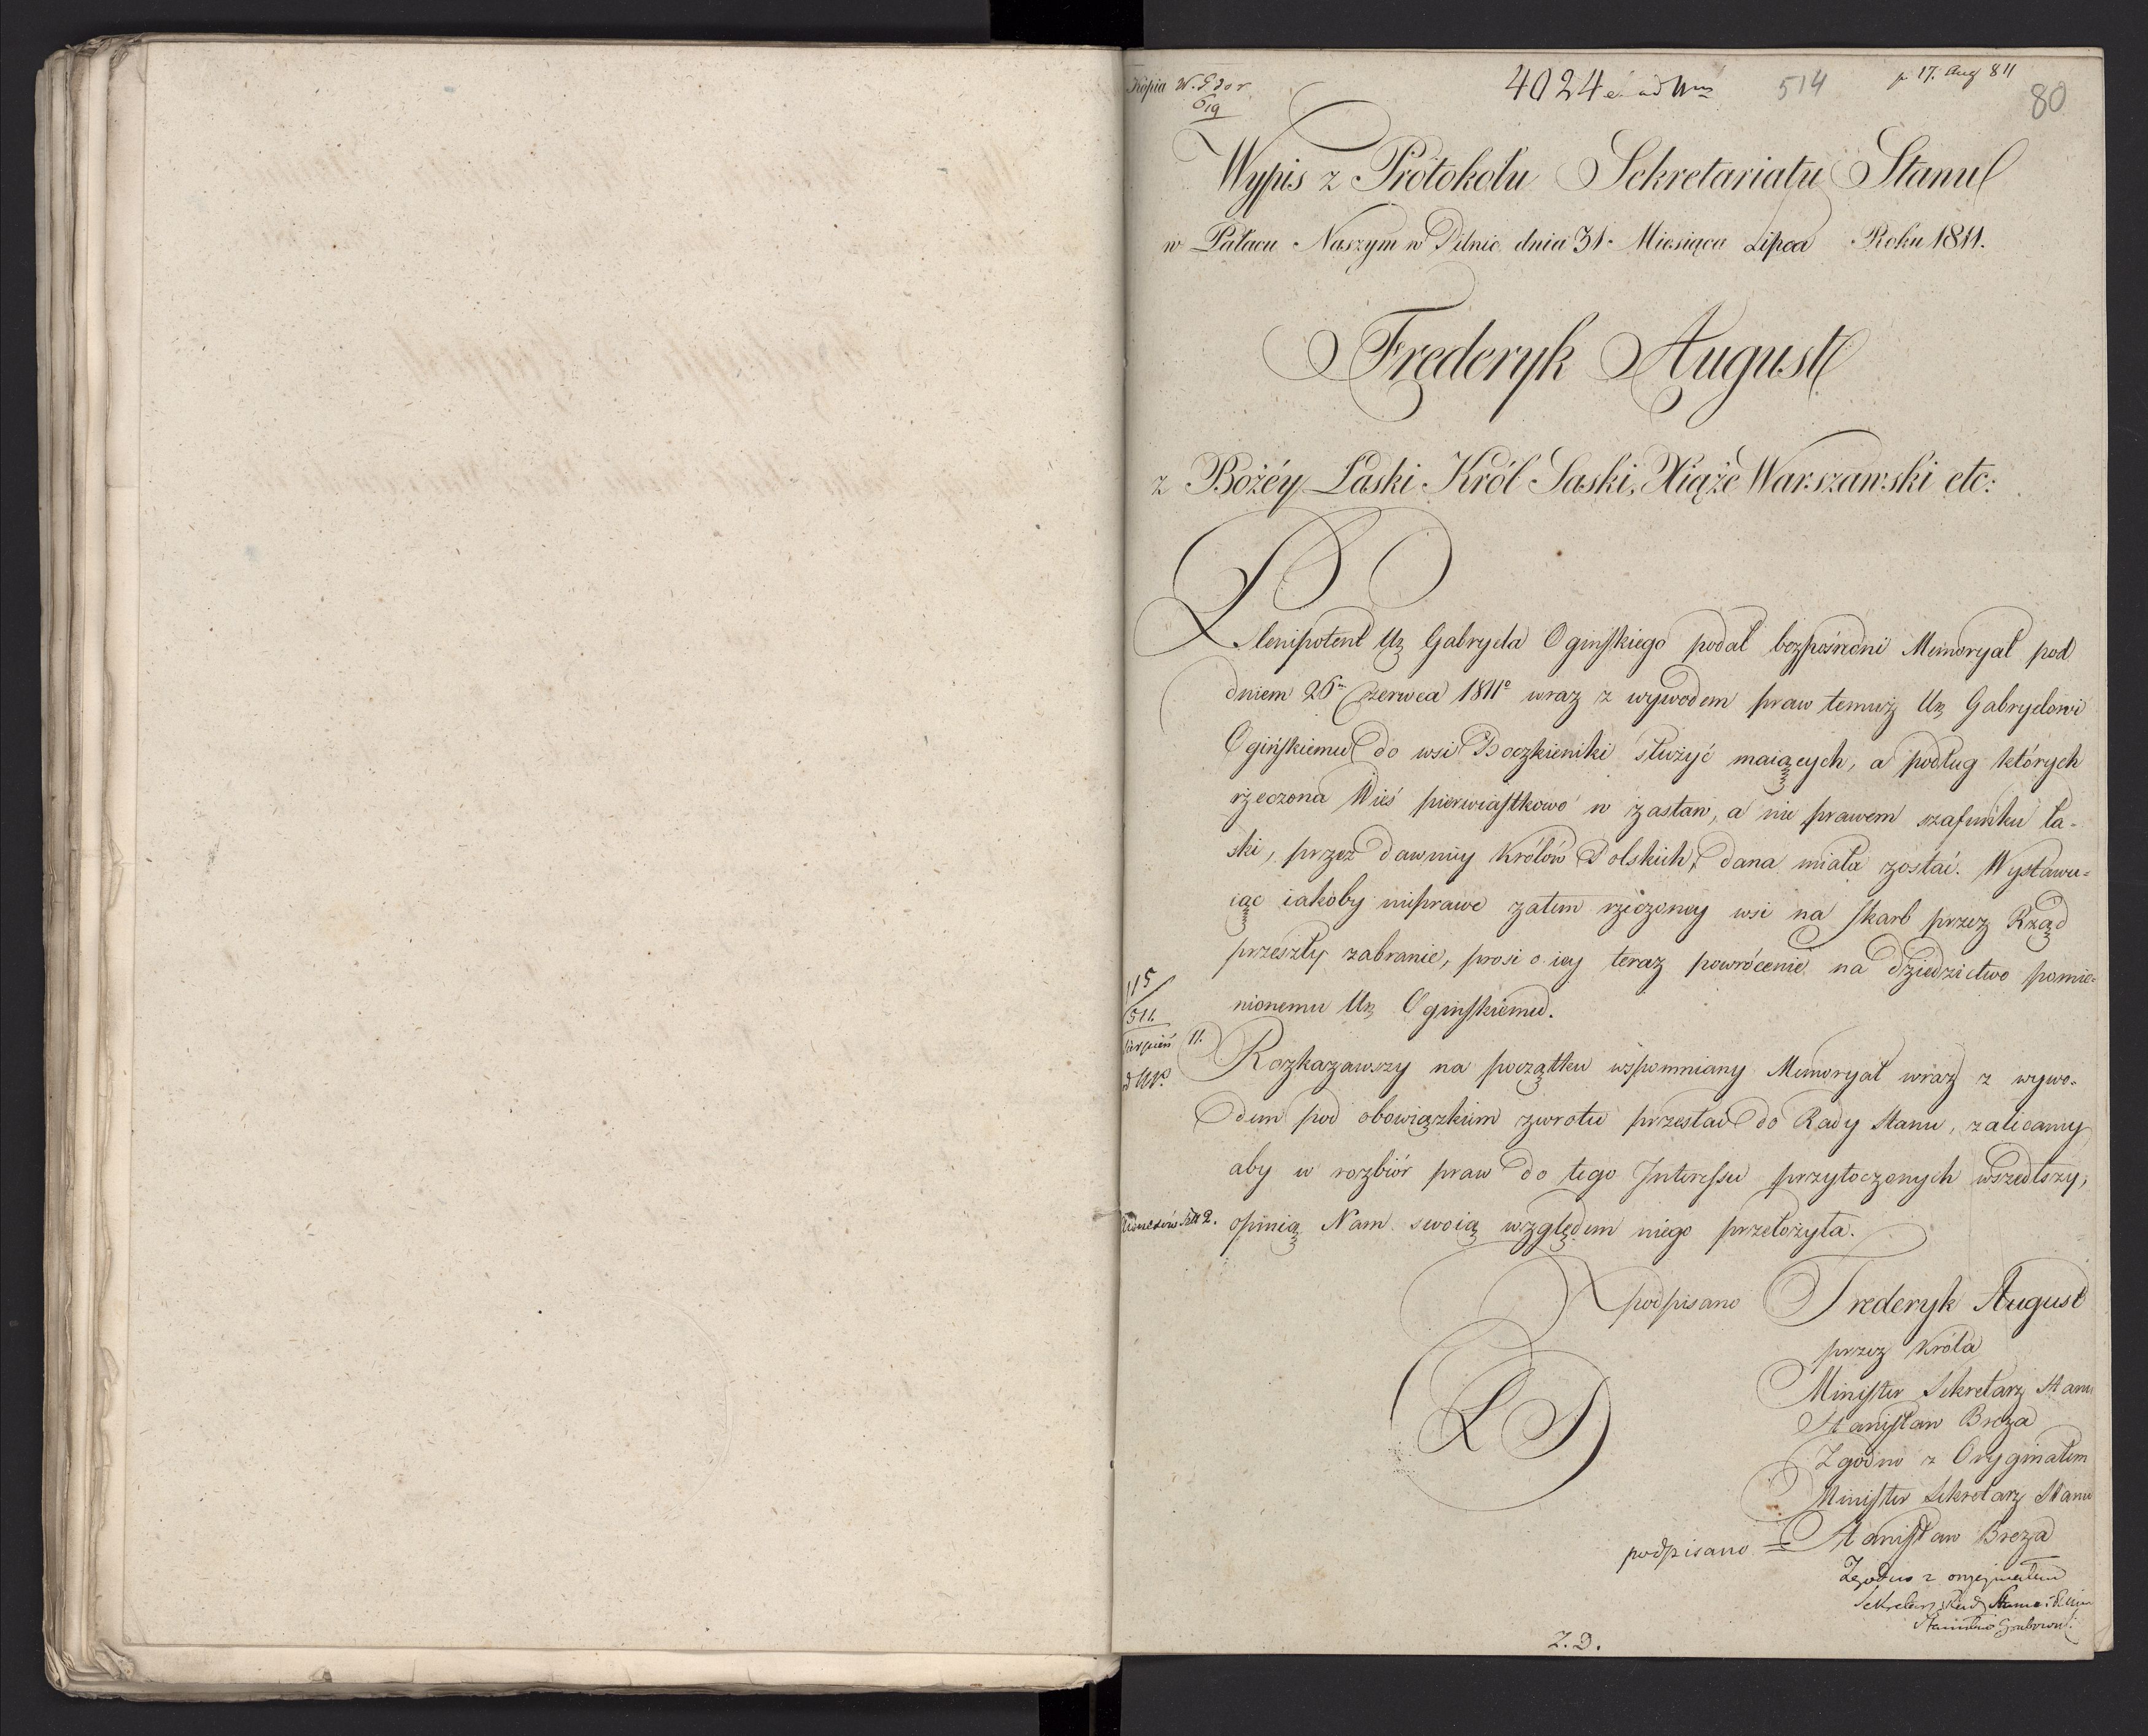 Kopia W. Gdor
4024 514 p 17. Aug 811
80
Wypis z Protokółu Sekretariatu Stanu
w Pałacu Naszym w Pilnic dnia 31. Miesiąca Lipca Roku 1811.
Frederyk August
z Bożéy Łaski Król Saski, Xiąże Warszawski etc:
Plenipotent Ur Gabryela Ogińskiego podał bezpośredni Memoryał pod
dniem 26 Czerwca 1811 wraz z wywodem praw temuż Ur Gabryelowi
Ogińskiemu do wsi Boczkieniki służyć maiących, a podług których
rzeczona Wieś pierwiastkowo w zastaw, a nie prawem szafunku ła-
ski, przez dawnny Królów Polskich, dana miała zostać. Wystawu-
iąc iakoby nieprawe zatem rzeczoney wsi na skarb przez Rząd
przeszły zabranie, prosi o iey teraz powrócenie na dziedzictwo pomie-
nionemu Ur Ogińskiemu.
115
511
Sierpień 11.
Rozkazawszy na początku wspomniany Memoryał wraz z wywo-
dem pod obowiązkiem zwrotu przesłać do Rady Stanu, zalicamy
aby w rozbiór praw do tego Interessu przytoczonych wszedłszy,
opinią Nam swoią względem niego przełożyła.
podpisano Frederyk August
przez Króla
Minister Sekretarz Stanu
Stanisław Breza
LS
Zgodno z Oryginałem
Minister Sekretarz Stanu
podpisano = Stanisław Breza
Zgodno z oryginałem
Sekretarz Rady Stanu
Stanisław Grabowski
Z.D.